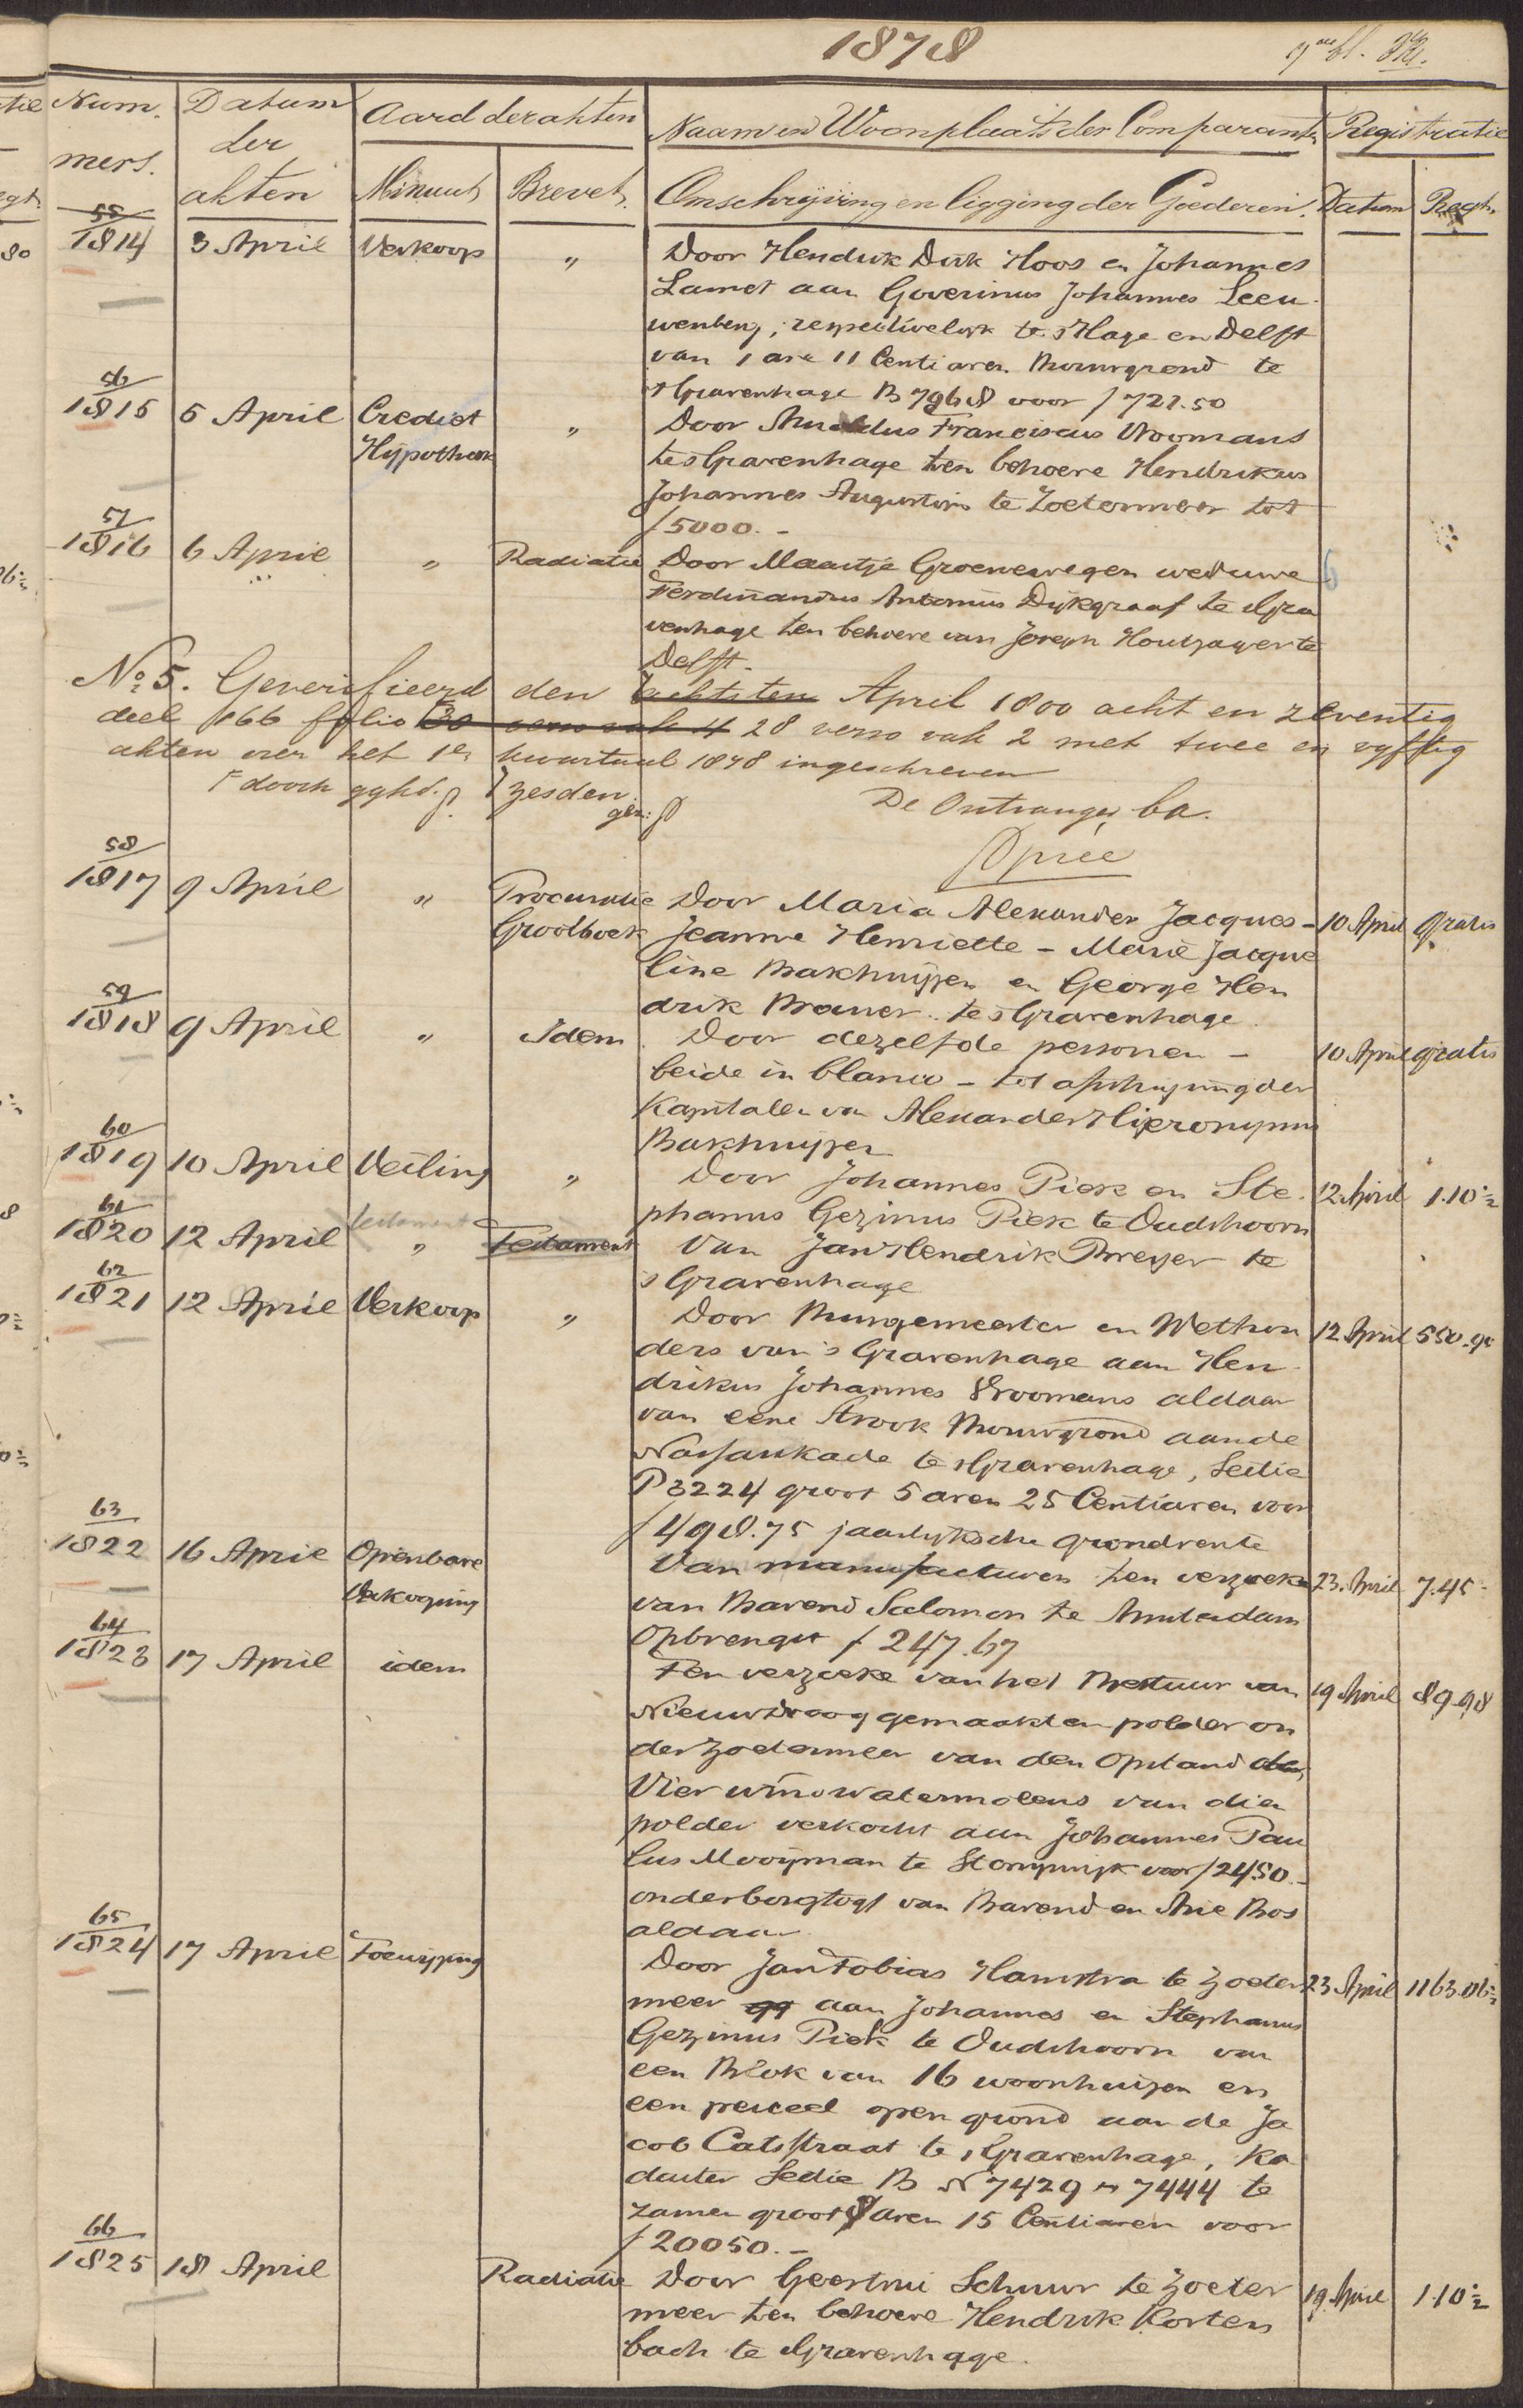 1878
9de bl.
Num. mers. Datum der akten Aard der akten Minuut Brevet. Naam en Woonplaats der Comparanten Omschrijving en ligging der Goederen. Registratie Datum Regt.
55
1814 3 April Verkoop " Door Hendrik Dirk Hoos en Johannes
Lamet aan Goverinus Johannes Leeu
wenberg, respectivelijk te s Hage en Delft
van 1 are 11 Centiaren Bouwgrond te
s Gravenhage B 7968 voor f 721.50
56
1815 5 April Crediet Hypotheek " Door Arnoldus Franciscus Vroomans
te s Gravenhage ten behoeve Hendrikus
Johannes Augustinus te Zoetermeer tot
f 5000.-
57
1816 6 April " Radiatie Door Maartje Groeneweegen weduwe
Ferdinandus Antonius Dijkgraaf te s Gra
venhage ten behoeve van Joseph Houtzager te
Delft.
No 5. Geverifieerd den achtsten April 1800 acht en zeventig
deel 166 folio 30 verso vak 4 28 verso vak 2 met twee en vijftig
akten over het 1e kwartaal 1878 ingeschreven
zesden
De Ontvanger ba.
58
1817 9 April " Procuratie Grootboek Door Maria Alexander Jacques - 10 April Gratis
Jeanne Henriette - Marie Jacque
line Bakhuijzen en George Hen
drik Bramer te s Gravenhage
59
1818 9 April " Idem Door dezelfde personen - 10 April gratis
beide in blanco - tot afschrijving der
Kapitalen van Alexander Hijeronymus
Bakhuijzen
60
1819 10 April Veiling " Door Johannes Piek en Ste 12 April 1.10½
phanus Gezinus Piek te Oudshoorn
61
1820 12 April testament " Testament Van Jan Hendrik Breyer te
s Gravenhage
62
1821 12 April Verkoop " Door Burgemeester en Wethou 12 April 550.90
ders van s Gravenhage aan Hen
drikus Johannes Vroomans aldaar
van eene Strook Bouwgrond aan de
Nassaukade te s Gravenhage, Sectie
P 3224 groot 5 aren 25 Centiaren voor
f 498.75 jaarlijksche grondrente
63
1822 16 April Openbare Verkooping Van manufacturen ten verzoeke 23 April 7.45
van Barend Salomon te Amsterdam
Opbrengst f 247.67
64
1823 17 April idem Ten verzoeke van het Bestuur van 19 April 89.98
Nieuwdroog gemaakten polder on
der Zoetermeer van den Opstand der
Vier windwatermolens van dien
polder verkocht aan Johannes Pau
lus Mooijman te Stompwijk voor f 2450.-
onder borgtogt van Barend en Arie Bos
aldaar
65
1824 17 April Toewijzing Door Jan Tobias Hamstra te Zoeter 23 April 1163.06½
meer qq aan Johannes en Stephanus
Gezinus Piek te Oudshoorn van
een Blok van 16 woonhuizen en
een perceel open grond aan de Ja
cob Catsstraat te s Gravenhage, Ka
daster Sectie B N 7429 7444 te
zamen groot 8 aren 15 Centiaren voor
f 20050.-
66
1825 18 April Radiatie Door Geertrui Schuur te Zoeter 19 April 1.10½
meer ten behoeve Hendrik Korten
bach te s Gravenhage.